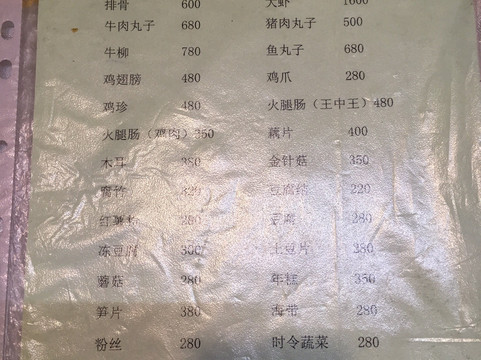 排骨 600 大虾 1600
牛肉丸子 680 猪肉丸子 500
牛柳 780 鱼丸子 680
鸡翅膀 480 鸡爪 280
鸡珍 480 火腿肠（王中王）480
火腿肠（鸡肉）350 藕片 400
木耳 380 金针菇 350
腐竹 320 豆腐结 220
红薯粉 280 豆腐 280
冻豆腐 300 土豆片 280
蘑菇 280 年糕 350
笋片 380 海带 280
粉丝 280 时令蔬菜 280